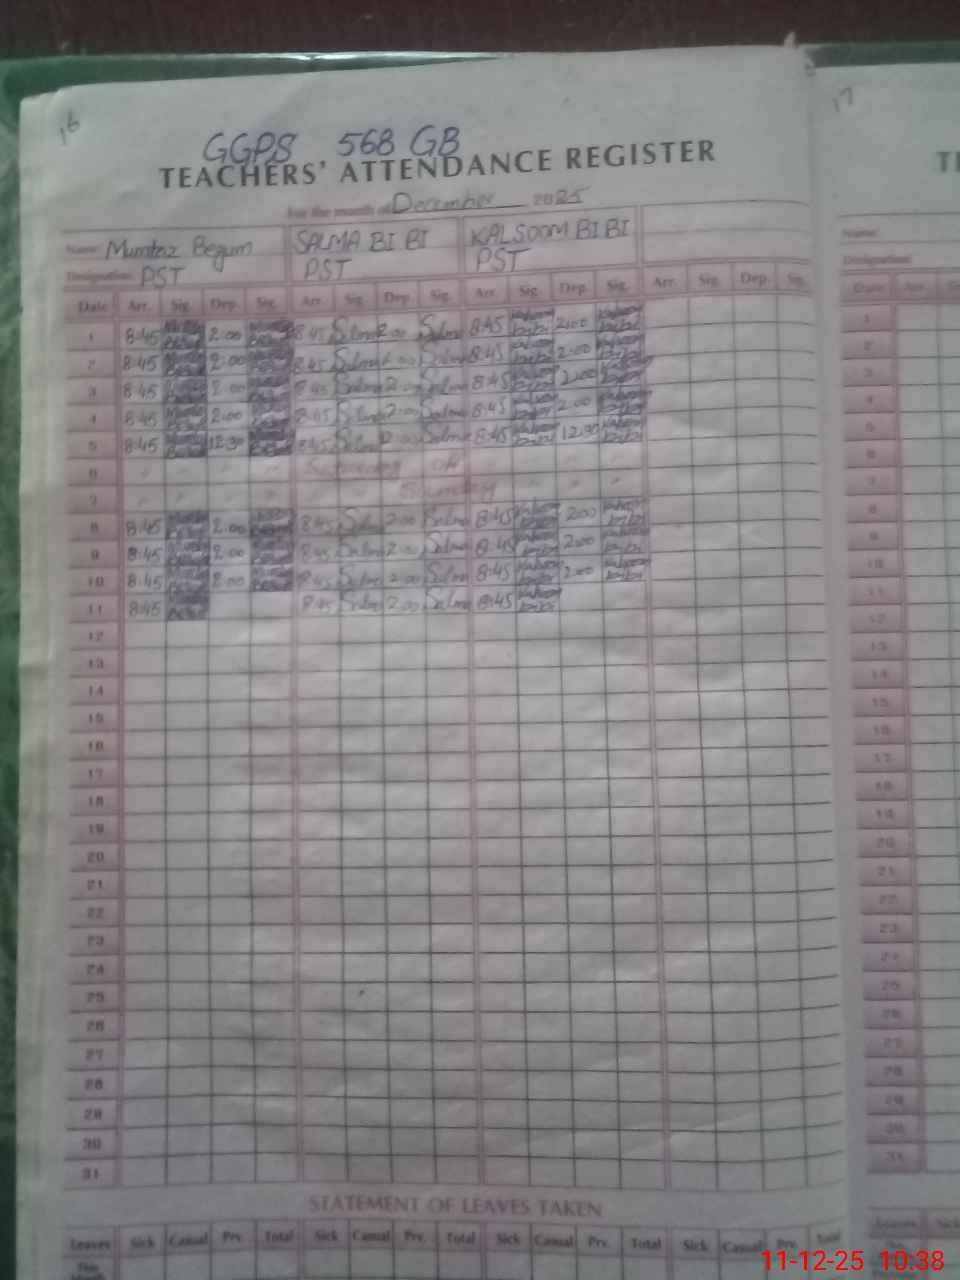 16
17
GGPS 568 GB
TEACHERS' ATTENDANCE REGISTER
For the month of December 2025
Name: Mumtaz Begum SALMA BI BI KALSOOM BI BI
Designation: PST PST PST
Name:
Designation:
Date Arr. Sig. Dep. Sig. Arr. Sig. Dep. Sig. Arr. Sig. Dep. Sig. Arr. Sig. Dep. Sig.
1 8:45 2:00 8:45 Salma 2:00 Salma 8:45 Kalsoom bibi 2:00 Kalsoom bibi
2 8:45 2:00 8:45 Salma 2:00 Salma 8:45 Kalsoom bibi 2:00 Kalsoom bibi
3 8:45 2:00 8:45 Salma 2:00 Salma 8:45 Kalsoom bibi 2:00 Kalsoom bibi
4 8:45 2:00 8:45 Salma 2:00 Salma 8:45 Kalsoom bibi 2:00 Kalsoom bibi
5 8:45 12:30 8:45 Salma Salma 8:45 Kalsoom bibi 12:30 Kalsoom bibi
6 " " " " Saturday off " "
7 " " " " " " Sunday " " "
8 8:45 2:00 8:45 Salma 2:00 Salma 8:45 Kalsoom bibi 2:00 Kalsoom bibi
9 8:45 2:00 8:45 Salma 2:00 Salma 8:45 Kalsoom bibi 2:00 Kalsoom bibi
10 8:45 2:00 8:45 Salma 2:00 Salma 8:45 Kalsoom bibi 2:00 Kalsoom bibi
11 8:45 8:45 Salma 2:00 Salma 8:45 Kalsoom bibi
12
13
14
15
16
17
18
19
20
21
22
23
24
25
26
27
28
29
30
31
STATEMENT OF LEAVES TAKEN
Leaves Sick Casual Prv. Total Sick Casual Prv. Total Sick Casual Prv. Total Sick Casual Prv. Total
This Month
11-12-25 10:38